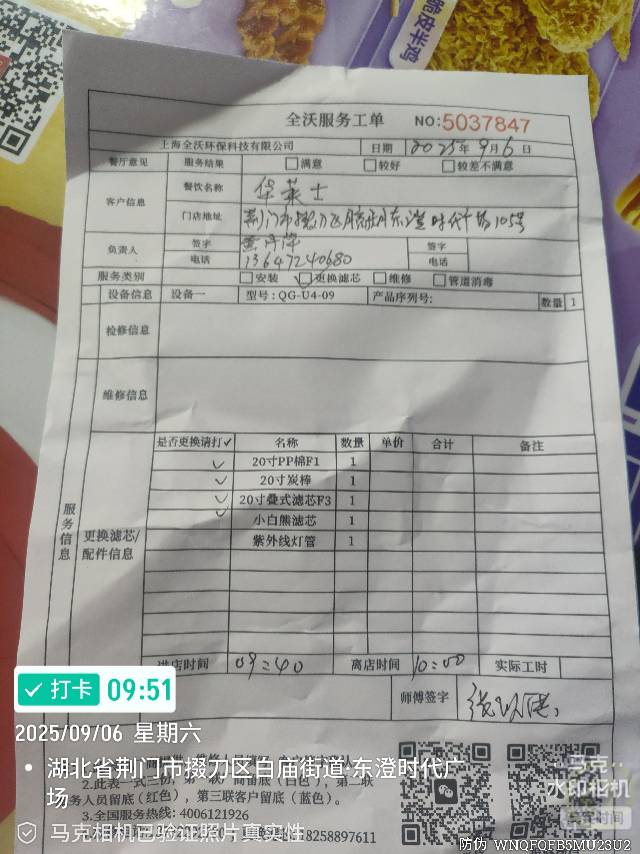 脆皮半鸡
全沃服务工单 NO:5037847
上海全沃环保科技有限公司 日期 2025年9月6日
餐厅意见 服务结果 满意 较好 较差不满意
客户信息 餐饮名称 华莱士
门店地址 荆门市掇刀区 东澄时代广场105号
负责人 签字 签字
电话 13647240680 电话
服务类别 安装 更换滤芯 维修 管道消毒
设备信息 设备一 型号:QG-U4-09 产品序列号: 数量 1
检修信息
维修信息
服务信息
更换滤芯/配件信息
是否更换请打✓ 名称 数量 单价 合计 备注
✓ 20寸PP棉F1 1
✓ 20寸炭棒 1
✓ 20寸叠式滤芯F3 1
✓ 小白熊滤芯 1
紫外线灯管 1
进店时间 09:40 离店时间 10:00 实际工时
师傅签字
✓打卡 09:51
2025/09/06 星期六
湖北省荆门市掇刀区白庙街道·东澄时代广
场
2.此表一式三份,第一联 商留底(白色),第二联
务人员留底(红色),第三联客户留底(蓝色)。
3.全国服务热线: 4006121926
18258897611
马克相机已验证照片真实性
马克
水印相机
防伪 WNQFQFB5MU23U2